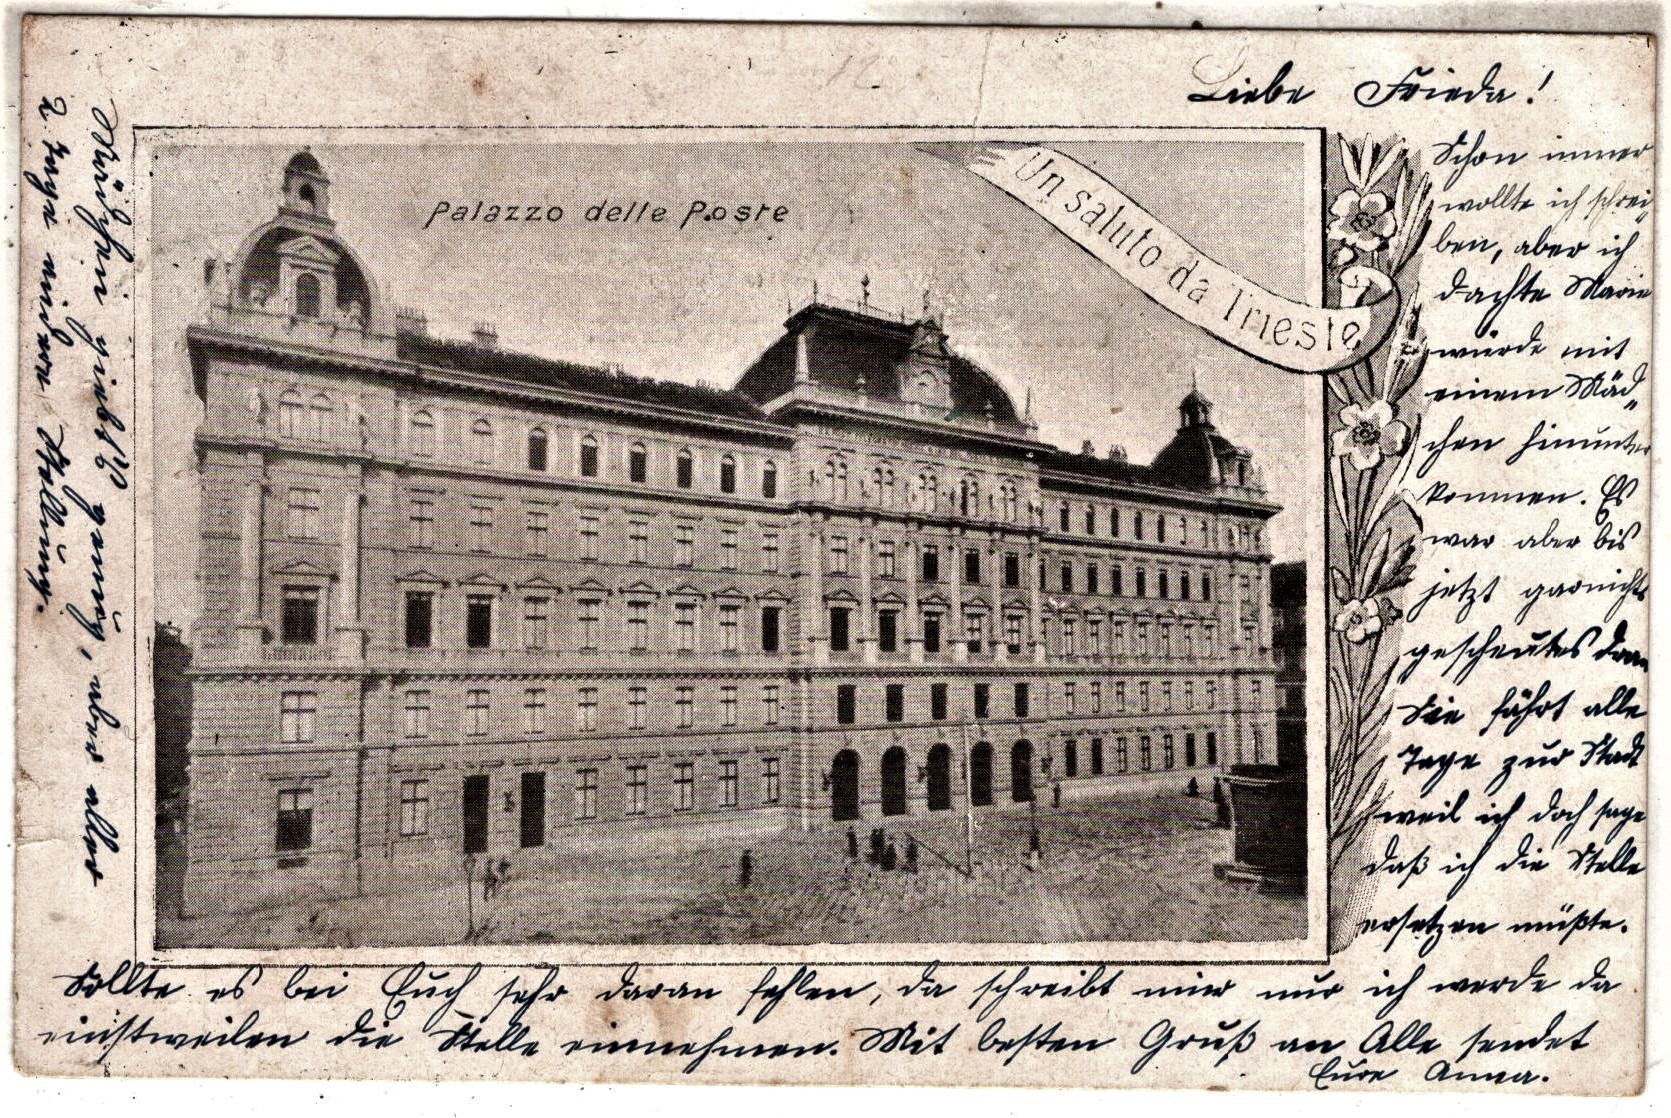 Liebe Frieda!
Palazzo delle Poste
Un saluto da Trieste
Schon immer
wollte ich schrei„
ben, aber ich
dachte Marie
würde mit
einem Mäd„
chen hinunter
kommen. Es
war aber bis
jetzt garnichts
gescheutes dran
Sie fährt alle
Tage zur Stadt
weil ich doch sage
daß ich die Stelle
ersetzen müßte.
Sollte es bei Euch sehr daran fehlen, da schreibt mir nur ich werde da
einstweilen die Stelle einnehmen. Mit besten Gruß an Alle sendet
Eure Anna.
Mädchen giebts genug, aber aller
2 Tage andere Stellung.